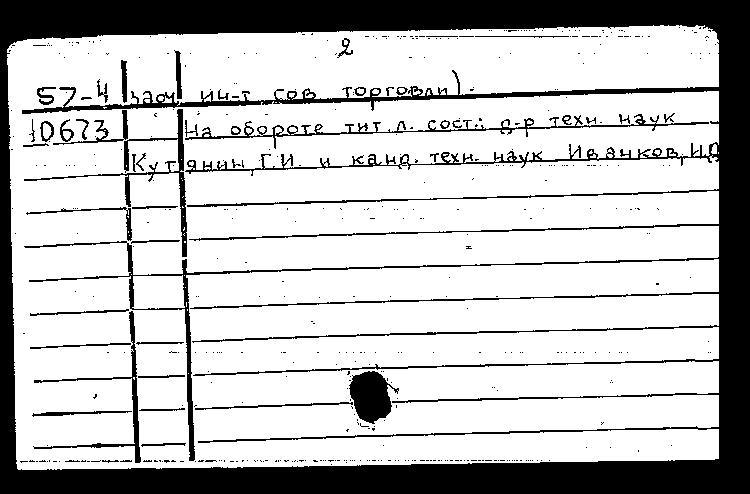 2
57-4 заоч ин-т сов торговли).
10673 На обороте тит.л. сост.: д-р техн. наук
Кутянин, Г.И. и канд. техн. наук Иванков, И.Д